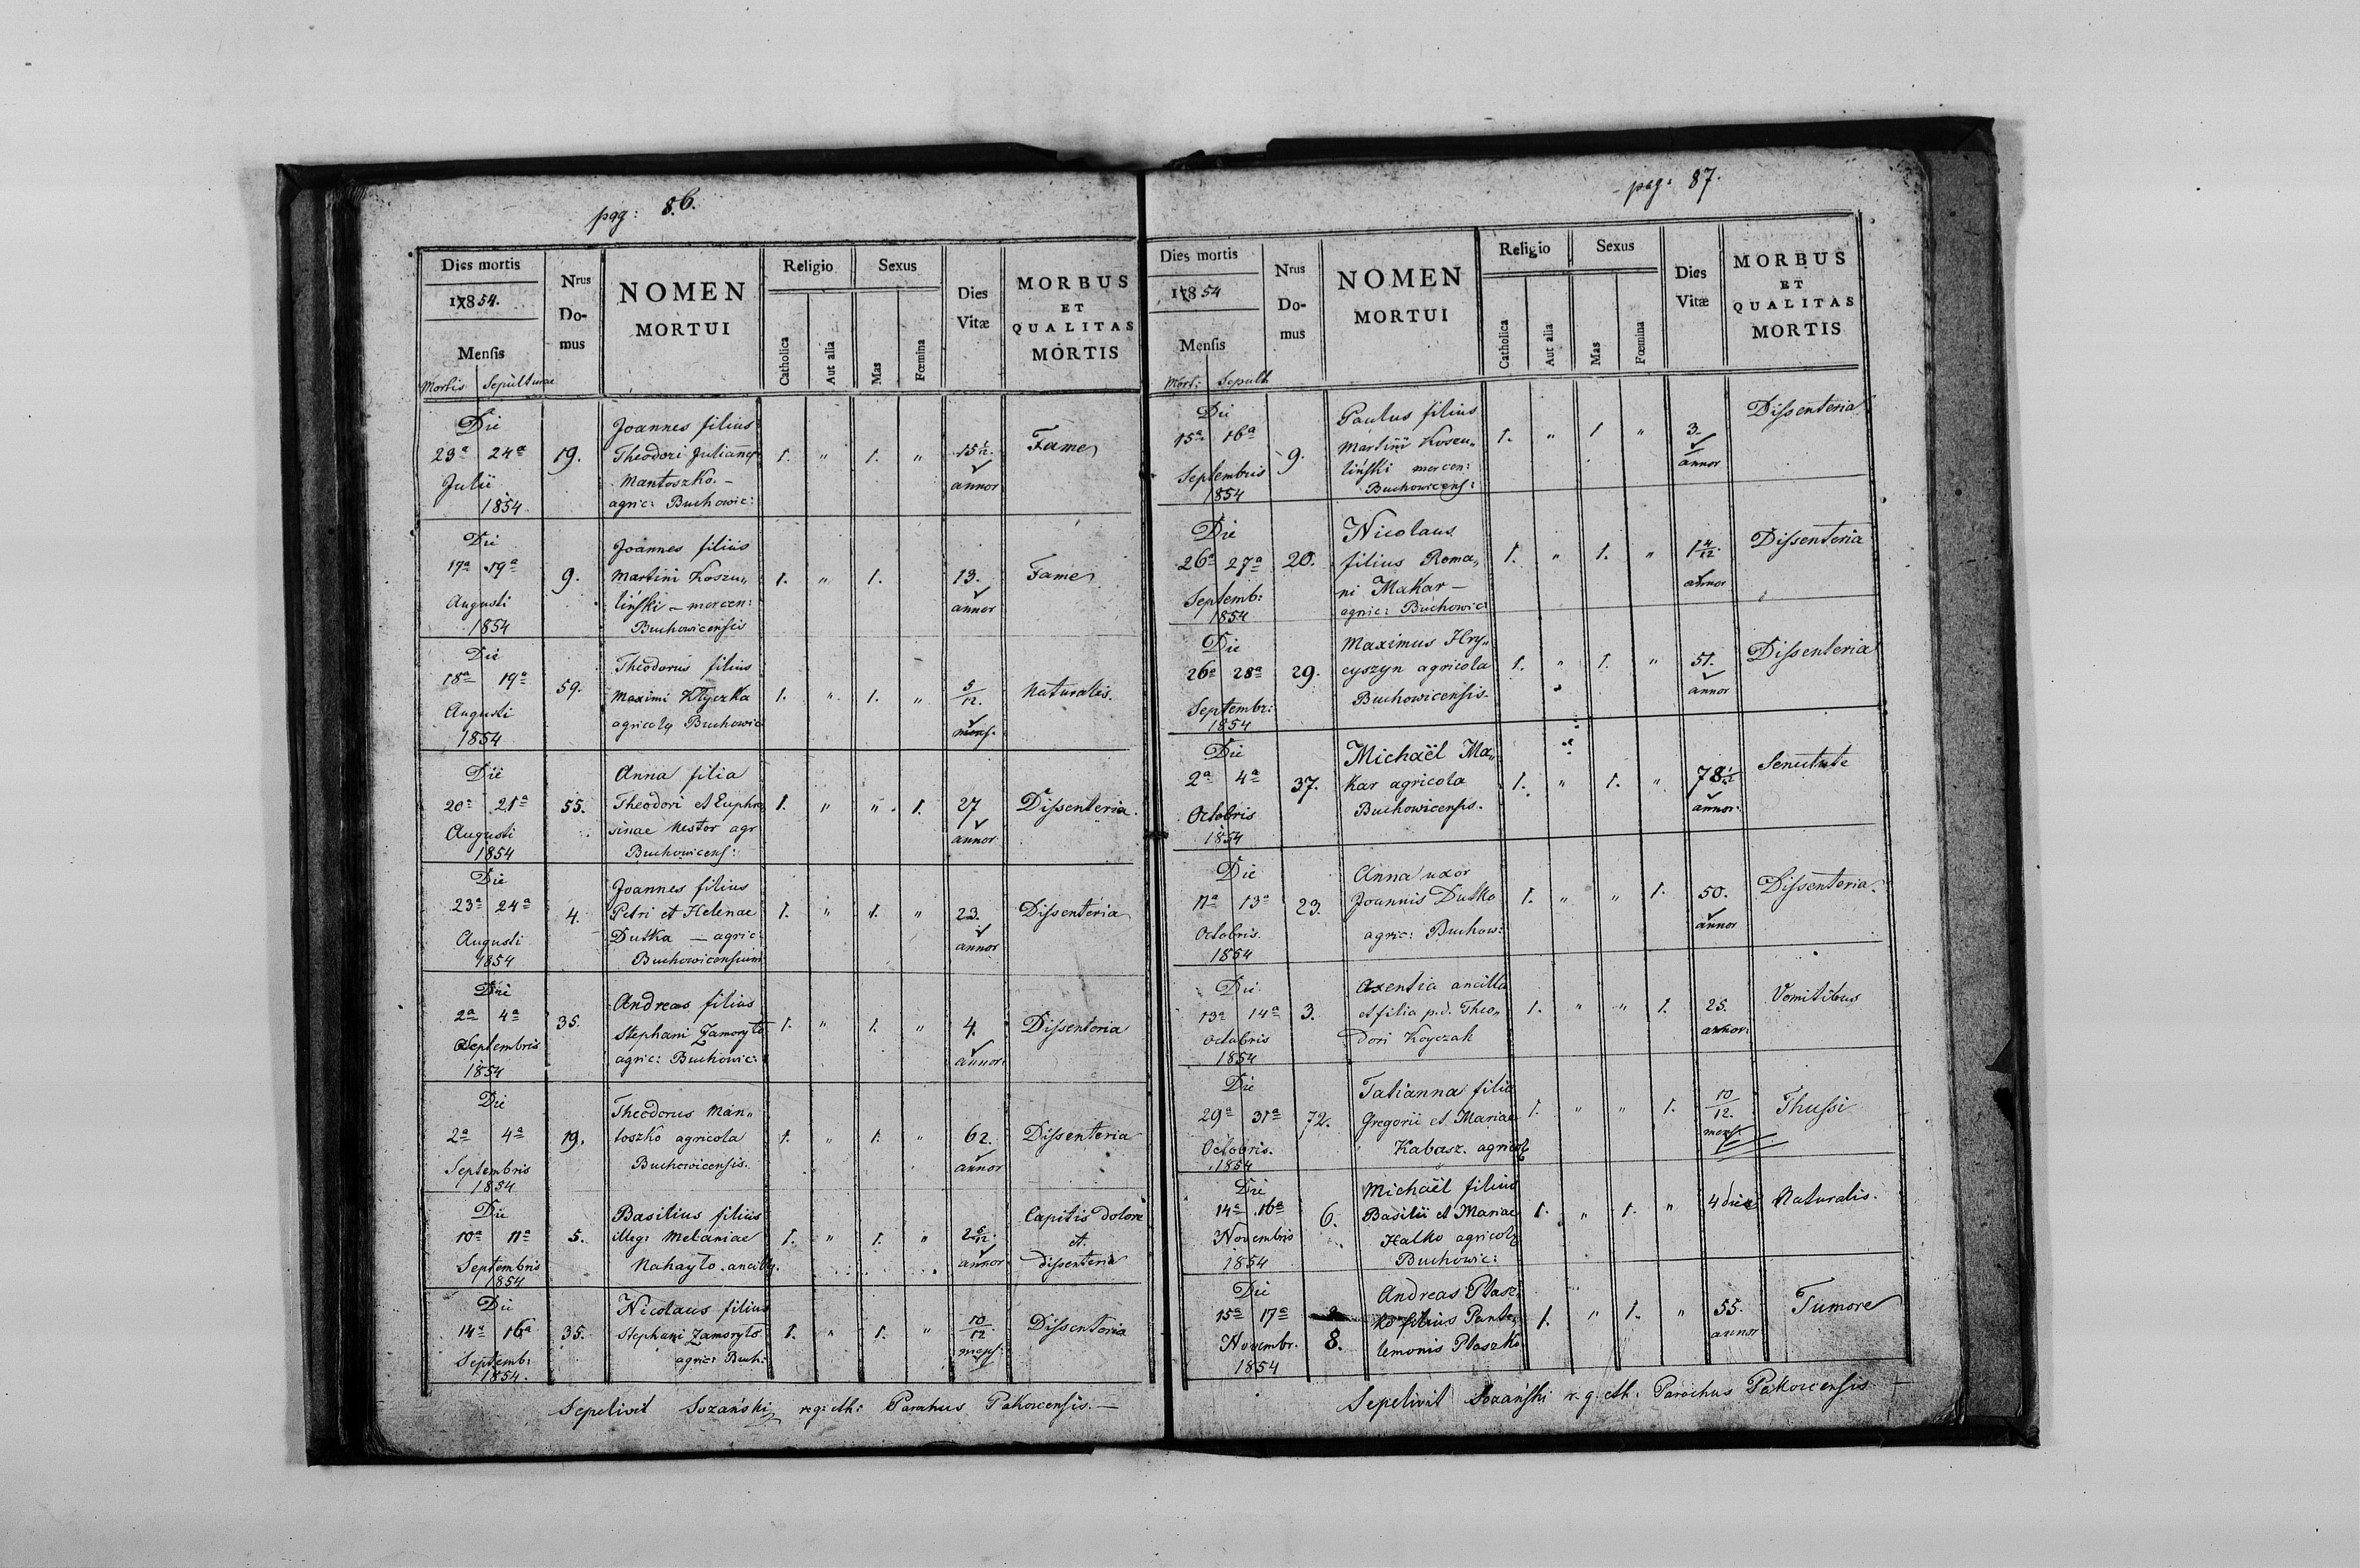 pag: 86.
Dies mortis
1854.
Mensis
Mortis Sepulturae
Nrus Do-mus
NOMEN MORTUI
Religio
Catholica
Aut alia
Sexus
Mas
Fœmina
Dies Vitæ
MORBUS ET QUALITAS MORTIS
Die
Joannes filius
23a 24a 19. Theodori Julianes 1. " 1. " 15 1/2. Fame
Julii Mantoszko. - annor
1854 agric: Buchowic:
Die
Joannes filius
17a 19a 9. Martini Koszu„ 1. " 1. 13. Fame
Augusti liński - mercen: annor
1854 Buchowicensis
Die
Theodorus filius
18a 19a 59. Maximi Kłyczka 1. " 1. " 5/12. Naturalis.
Augusti agricolę Buchowic mens.
1854
Die
Anna filia
20a 21a 55. Theodori et Euphro 1. " " 1. 27 Dissenteria.
Augusti sinae Nestor agr annor
1854 Buchowicens:
Die
Joannes filius
23a 24a 4. Petri et Helenae 1. " 1. " 23. Dissenteria
Augusti Dutka - agric: annor
1854 Buchowicensium
Die
Andreas filius
2a 4a 35. Stephani Zamoryło 1. " 1. " 4. Dissenteria
Septembris agric: Buchowic: annor.
1854
Die
Theodorus Man„
2a 4a 19. toszko agricola 1. " 1. " 62. Dissenteria
Septembris Buchowicensis. annor
1854
Die
Basilius filius Capitis dolore
10a 11a 5. illeg: Melaniae 1. " 1. " 2 6/12. et
Septembris Nahayło ancillę. annor dissenteria
1854
Die
Nicolaus filius
14a 16a 35. Stephani Zamoryło 1. " 1. " 10/12. Dissenteria
Septemb: agric: Buch: mens:
1854.
Sepelivit Sozański r. g: cth: Parochus Pakowcensis. -
pag: 87.
Dies mortis
1854
Mensis
Mort: Sepult
Nrus Do-mus
NOMEN MORTUI
Religio
Catholica
Aut alia
Sexus
Mas
Fœmina
Dies Vitæ
MORBUS ET QUALITAS MORTIS
Die
Paulus filius Dissenteria
15a 16a 9. Martini Koszu„ 1. " 1 " 3.
Septembris liński mercen: annor
1854 Buchowicens:
Die
Nicolaus
26a 27a 20. filius Roma„ 1. " 1. " 1 4/12. Dissenteria
Septemb: ni Makar - annor
1854 agric: Buchowic:
Die
Maximus Hry„
26a 28a 29. cyszyn agricola 1. " 1. " 51. Dissenteria
Septembr: Buchowicensis. annor
1854
Die
Michaël Ma„
2a 4a 37. kar agricola 1. " 1. " 78 1/2 Senectute
Octobris Buchowicensis. annor.
1854
Die
Anna uxor
11a 13a 23. Joannis Dutko 1. " " 1. 50. Dissenteria.
Octobris. agric: Buchow: annor
1854
Die
Axentia ancilla
13a 14a 3. et filia p.d. Theo„ 1. " " 1. 25. Vomitibus
Octobris dori Koyczak annor:
1854
Die
Tatianna filia
29a 31a 72. Gregorii et Mariae 1. " " 1. 10/12. Thussi
Octobris. Kabasz. agricolę mens:
1854
Die
Michaël filius
14a 16a 6. Basilii et Mariae 1. " 1. " 4 dies Naturalis.
Novembris Halko agricolę
1854 Buchowic:
Die
Andreas Ptasz„
15a 17a 8. ko filius Pante„ 1. " 1. " 55. Tumore
Novembr. lemonis Ptaszko annor
1854
Sepelivit Sozański r. g. cth: Parochus Pakowcensis -